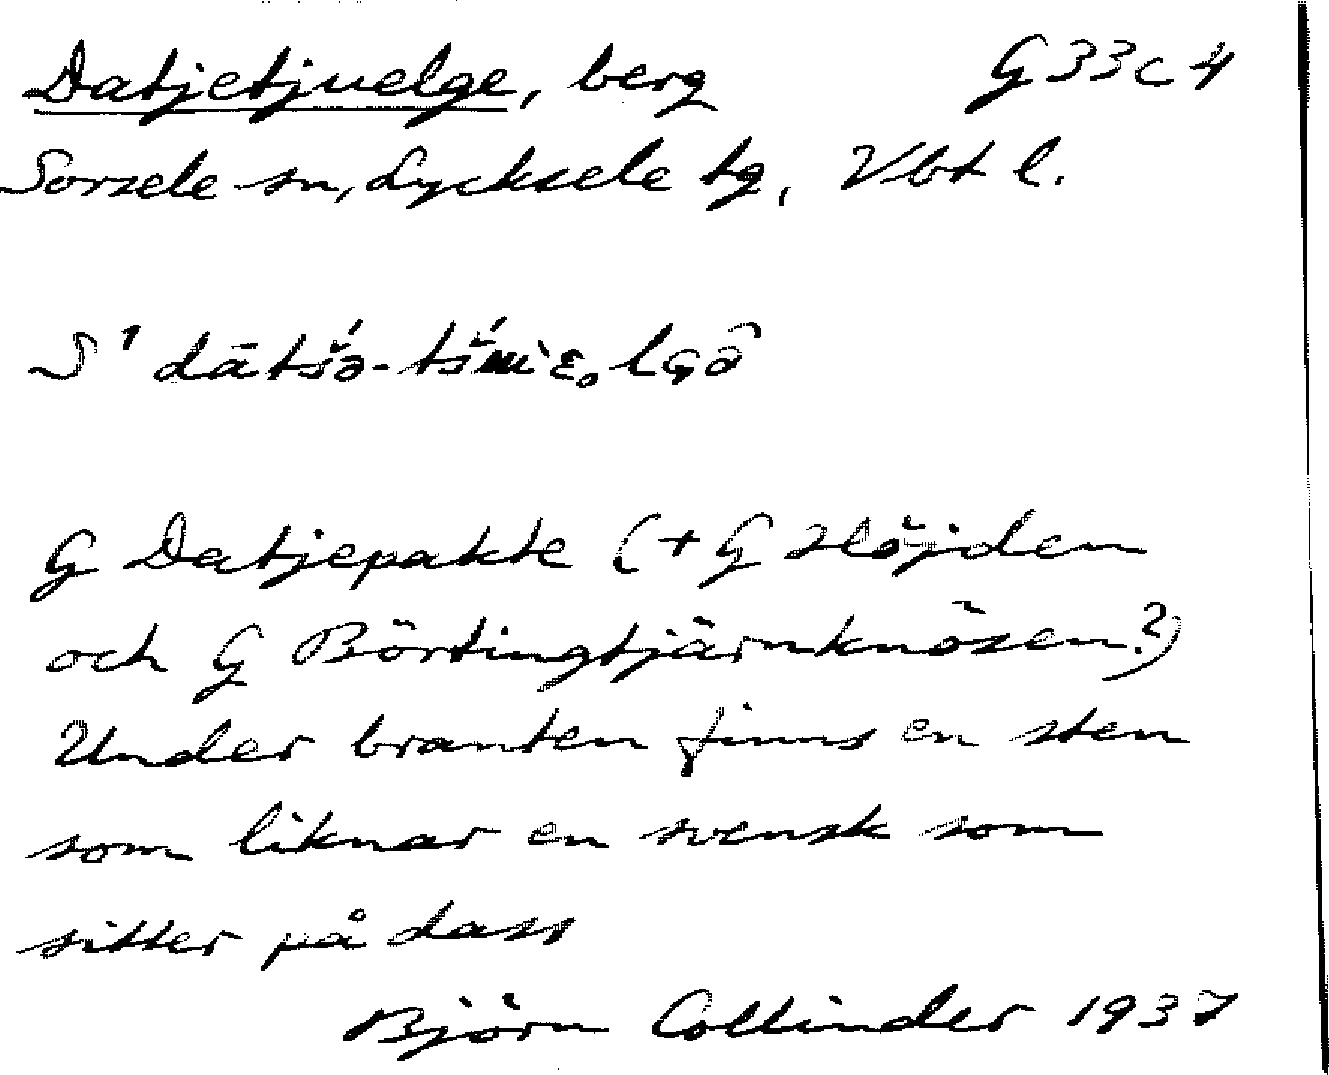 Datjetjuelge, berg G 33 c 4
Sorsele sn, Lycksele tg, Vbt l.
S¹
G Datjepakte (+ G Höjden
och G Börtingtjärnknösen?)
Under branten finns en sten
som liknar en svensk som
sitter på dass
Björn Collinder 1937